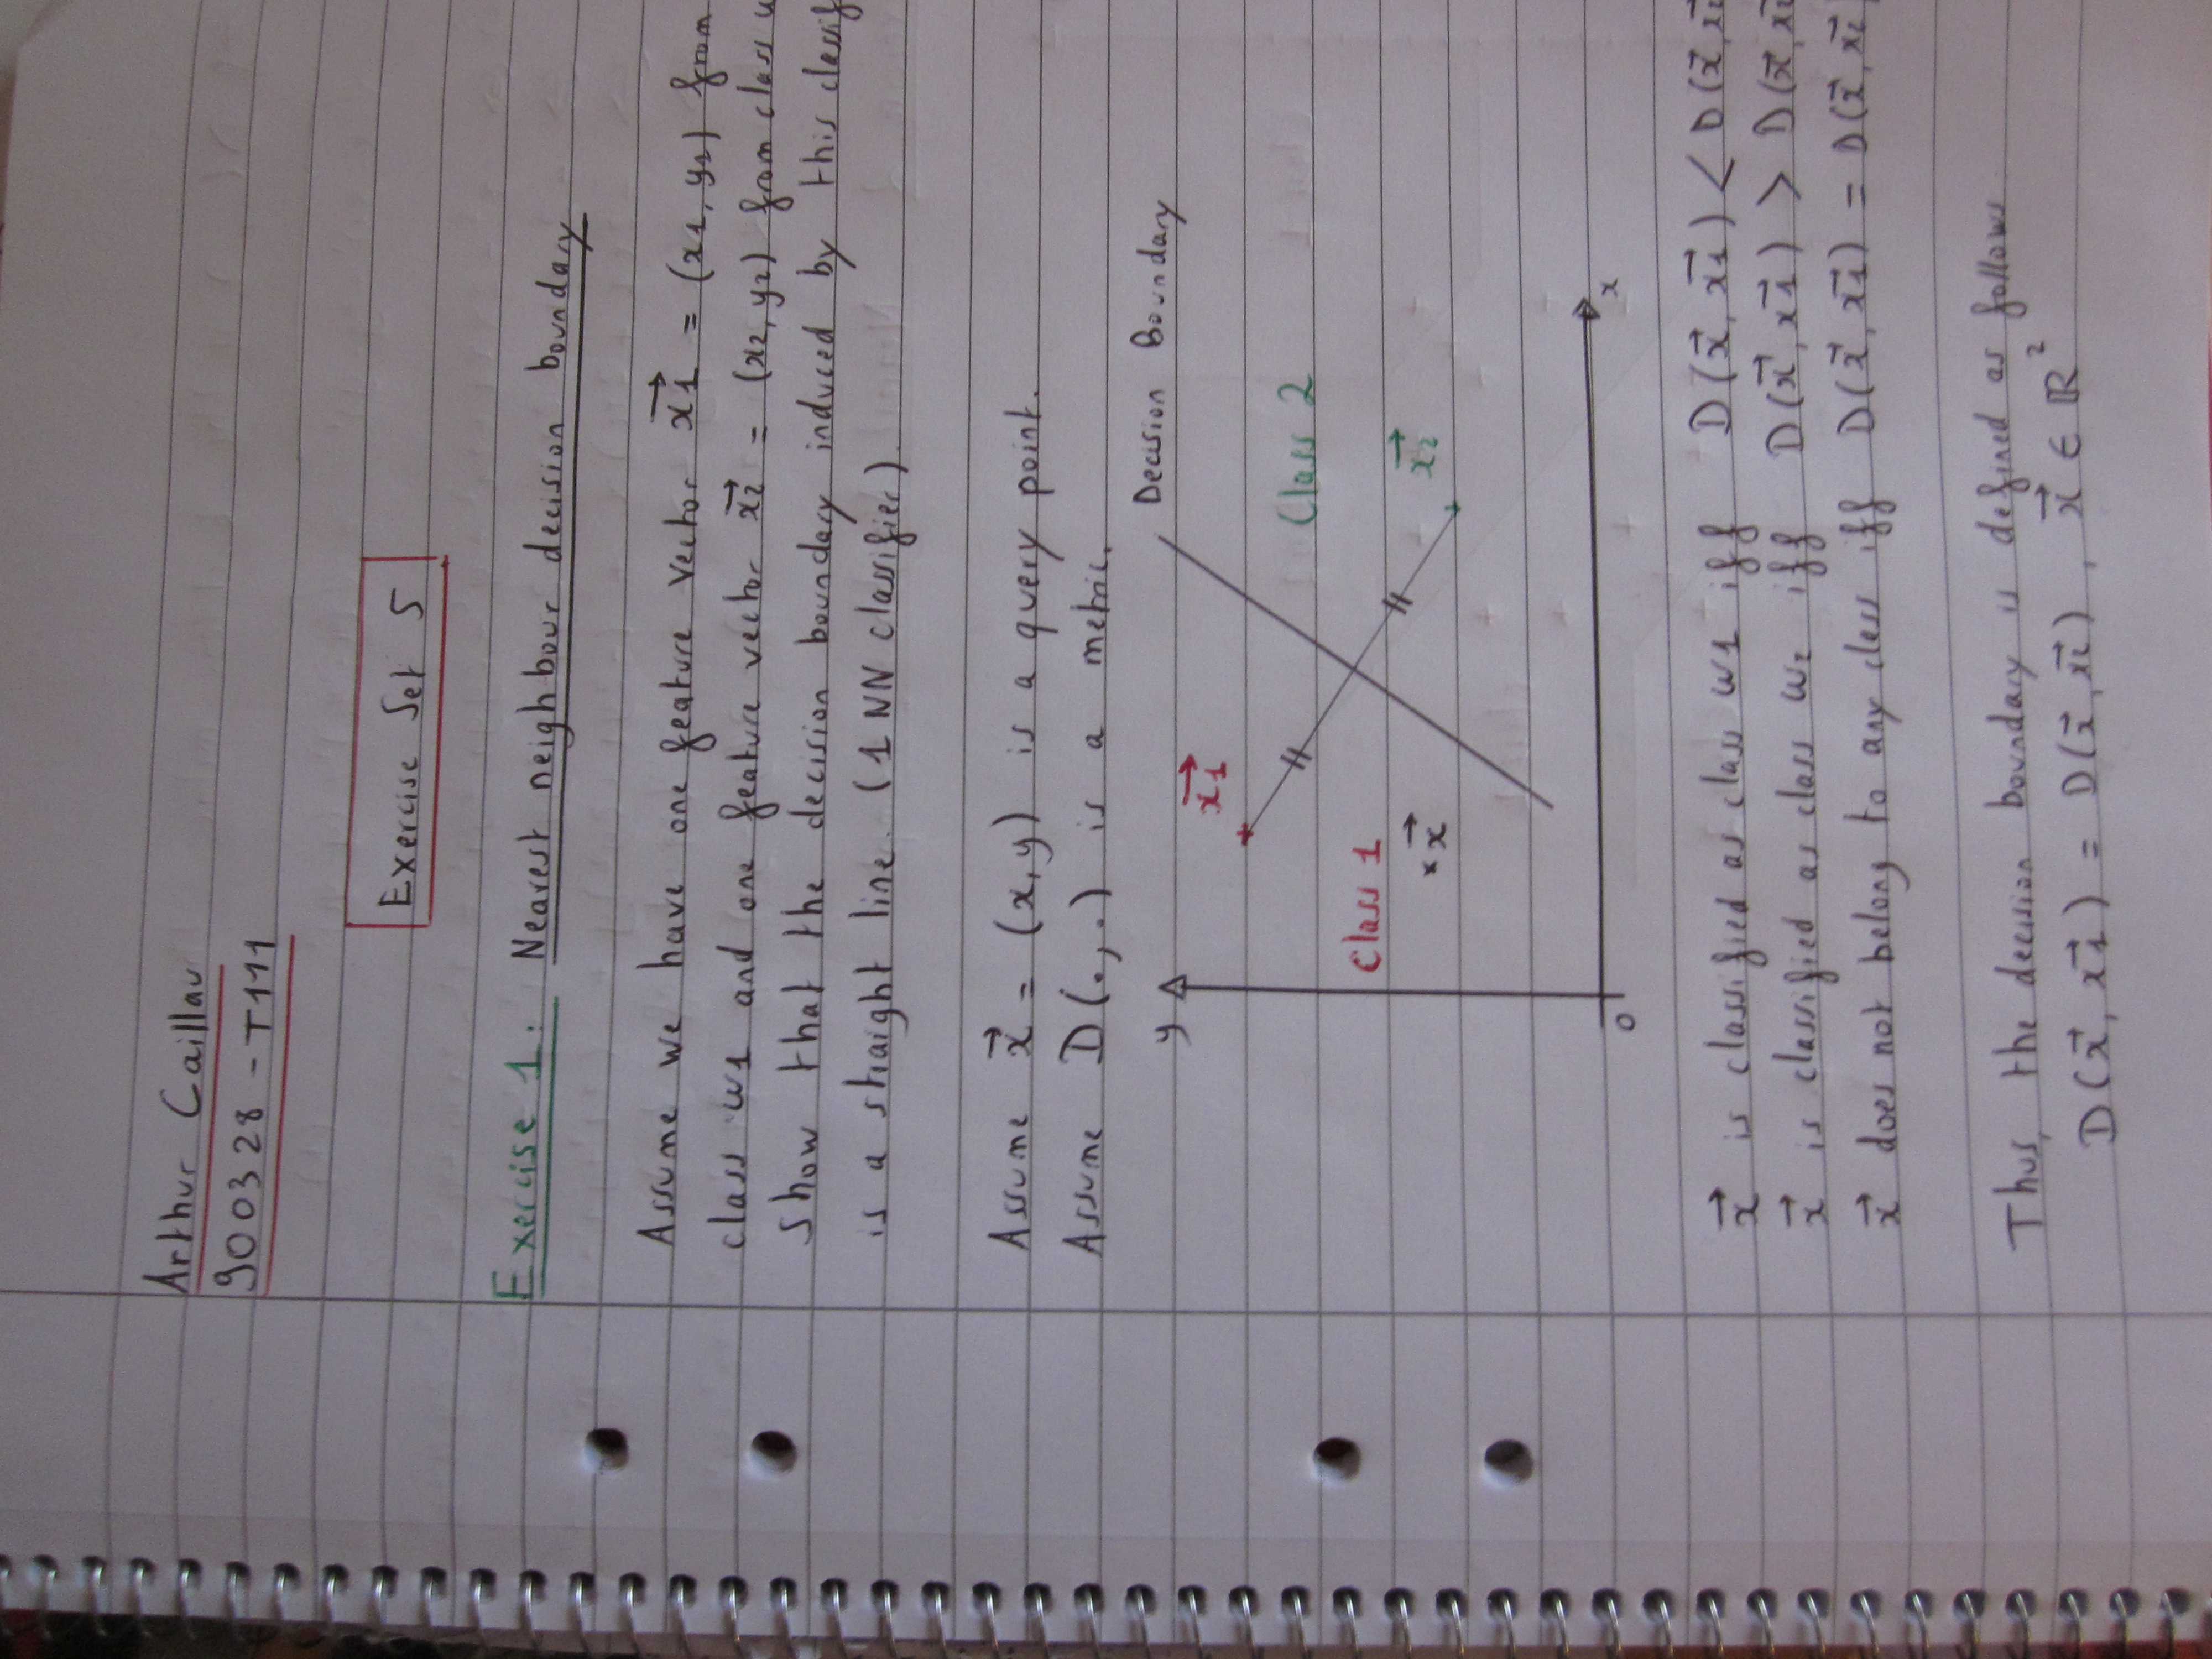 Arthur Caillau
900328 - T111
Exercise Set 5
Exercise 1: Nearest neighbour decision boundary
Assume we have one feature vector x⃗1 = (x1, y1) from
class w1 and one feature vector x⃗2 = (x2, y2) from class
show that the decision boundary induced by this classif
is a straight line. (1 NN classifier)
Assume x⃗ = (x, y) is a query point.
Assume D(., .) is a metric.
Decision Boundary
y
x⃗1
Class 2
Class 1
x⃗2
x⃗
0
x
x⃗ is classified as class w1 iff D(x⃗, x⃗1) < D(x⃗, x⃗2
x⃗ is classified as class w2 iff D(x⃗, x⃗1) > D(x⃗, x⃗2
x⃗ does not belong to any class iff D(x⃗, x⃗1) = D(x⃗, x⃗2
Thus, the decision boundary is defined as follows
D(x⃗, x⃗1) = D(x⃗, x⃗2), x⃗ ∈ ℝ²